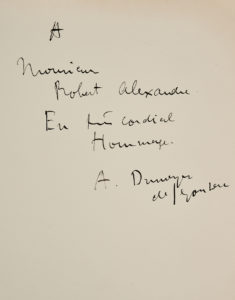 A
Monsieur
Robert Alexandre.
En très cordial
Hommage.
A.
de